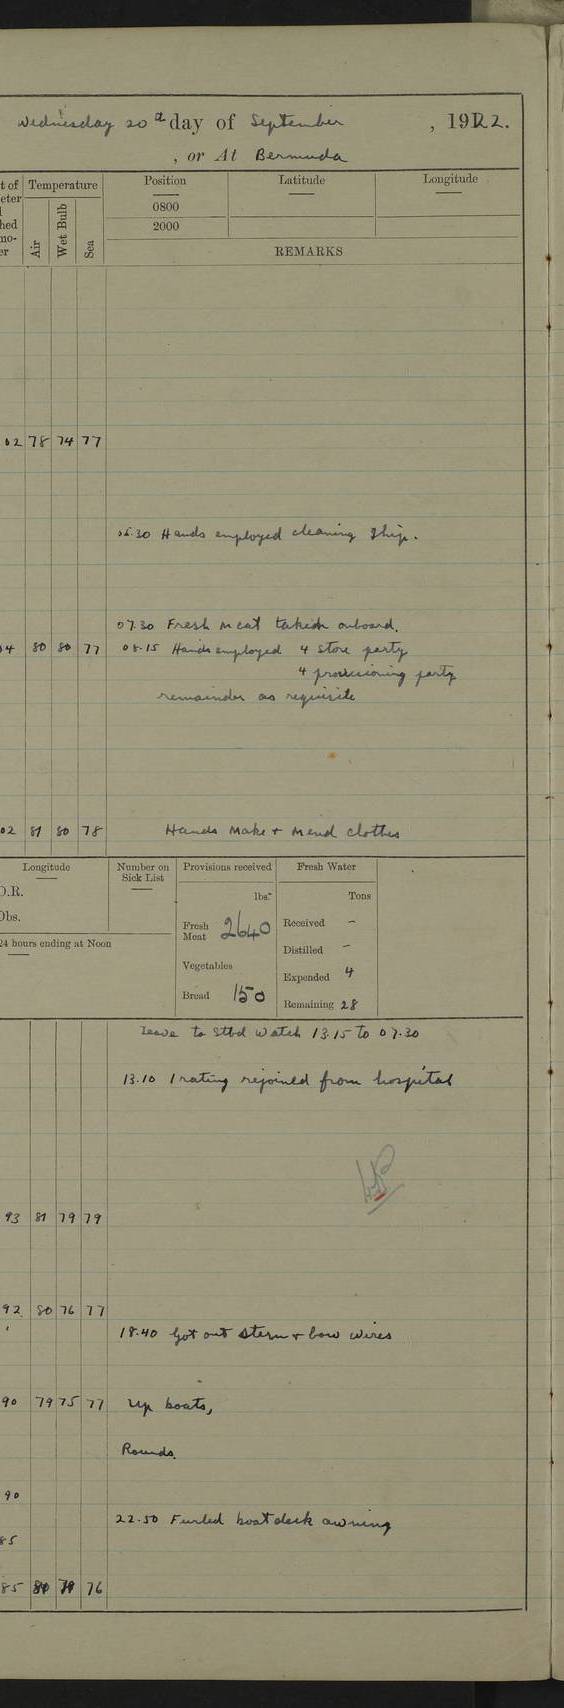 Wednesday 20th day of September , 1922.
, or At Bermuda
t of
eter
hed
mo-
er
Temperature
Air
Wet Bulb
Sea
Position
Latitude
Longitude
0800
2000
REMARKS
02 78 74 77
05.30 Hands employed cleaning Ship.
07.30 Fresh meat taken onboard.
04 80 80 77 08.15 Hands employed 4 store party
4 provisioning party
remainder as requisite
02 81 80 78 Hands Make & Mend clothes
Longitude
D.R.
Obs.
24 hours ending at Noon
Number on
Sick List
Provisions received
lbs.
Fresh
Meat 2640
Vegetables
Bread 150
Fresh Water
Tons
Received -
Distilled -
Expended 4
Remaining 28
Leave to Stbd Watch 13.15 to 07.30
13.10 1 rating rejoined from hospital
93 81 79 79
92 80 76 77
18.40 Got out stern & bow wires
90 79 75 77 Up boats,
Rounds.
90
22.50 Furled boat deck awning
85
85 76